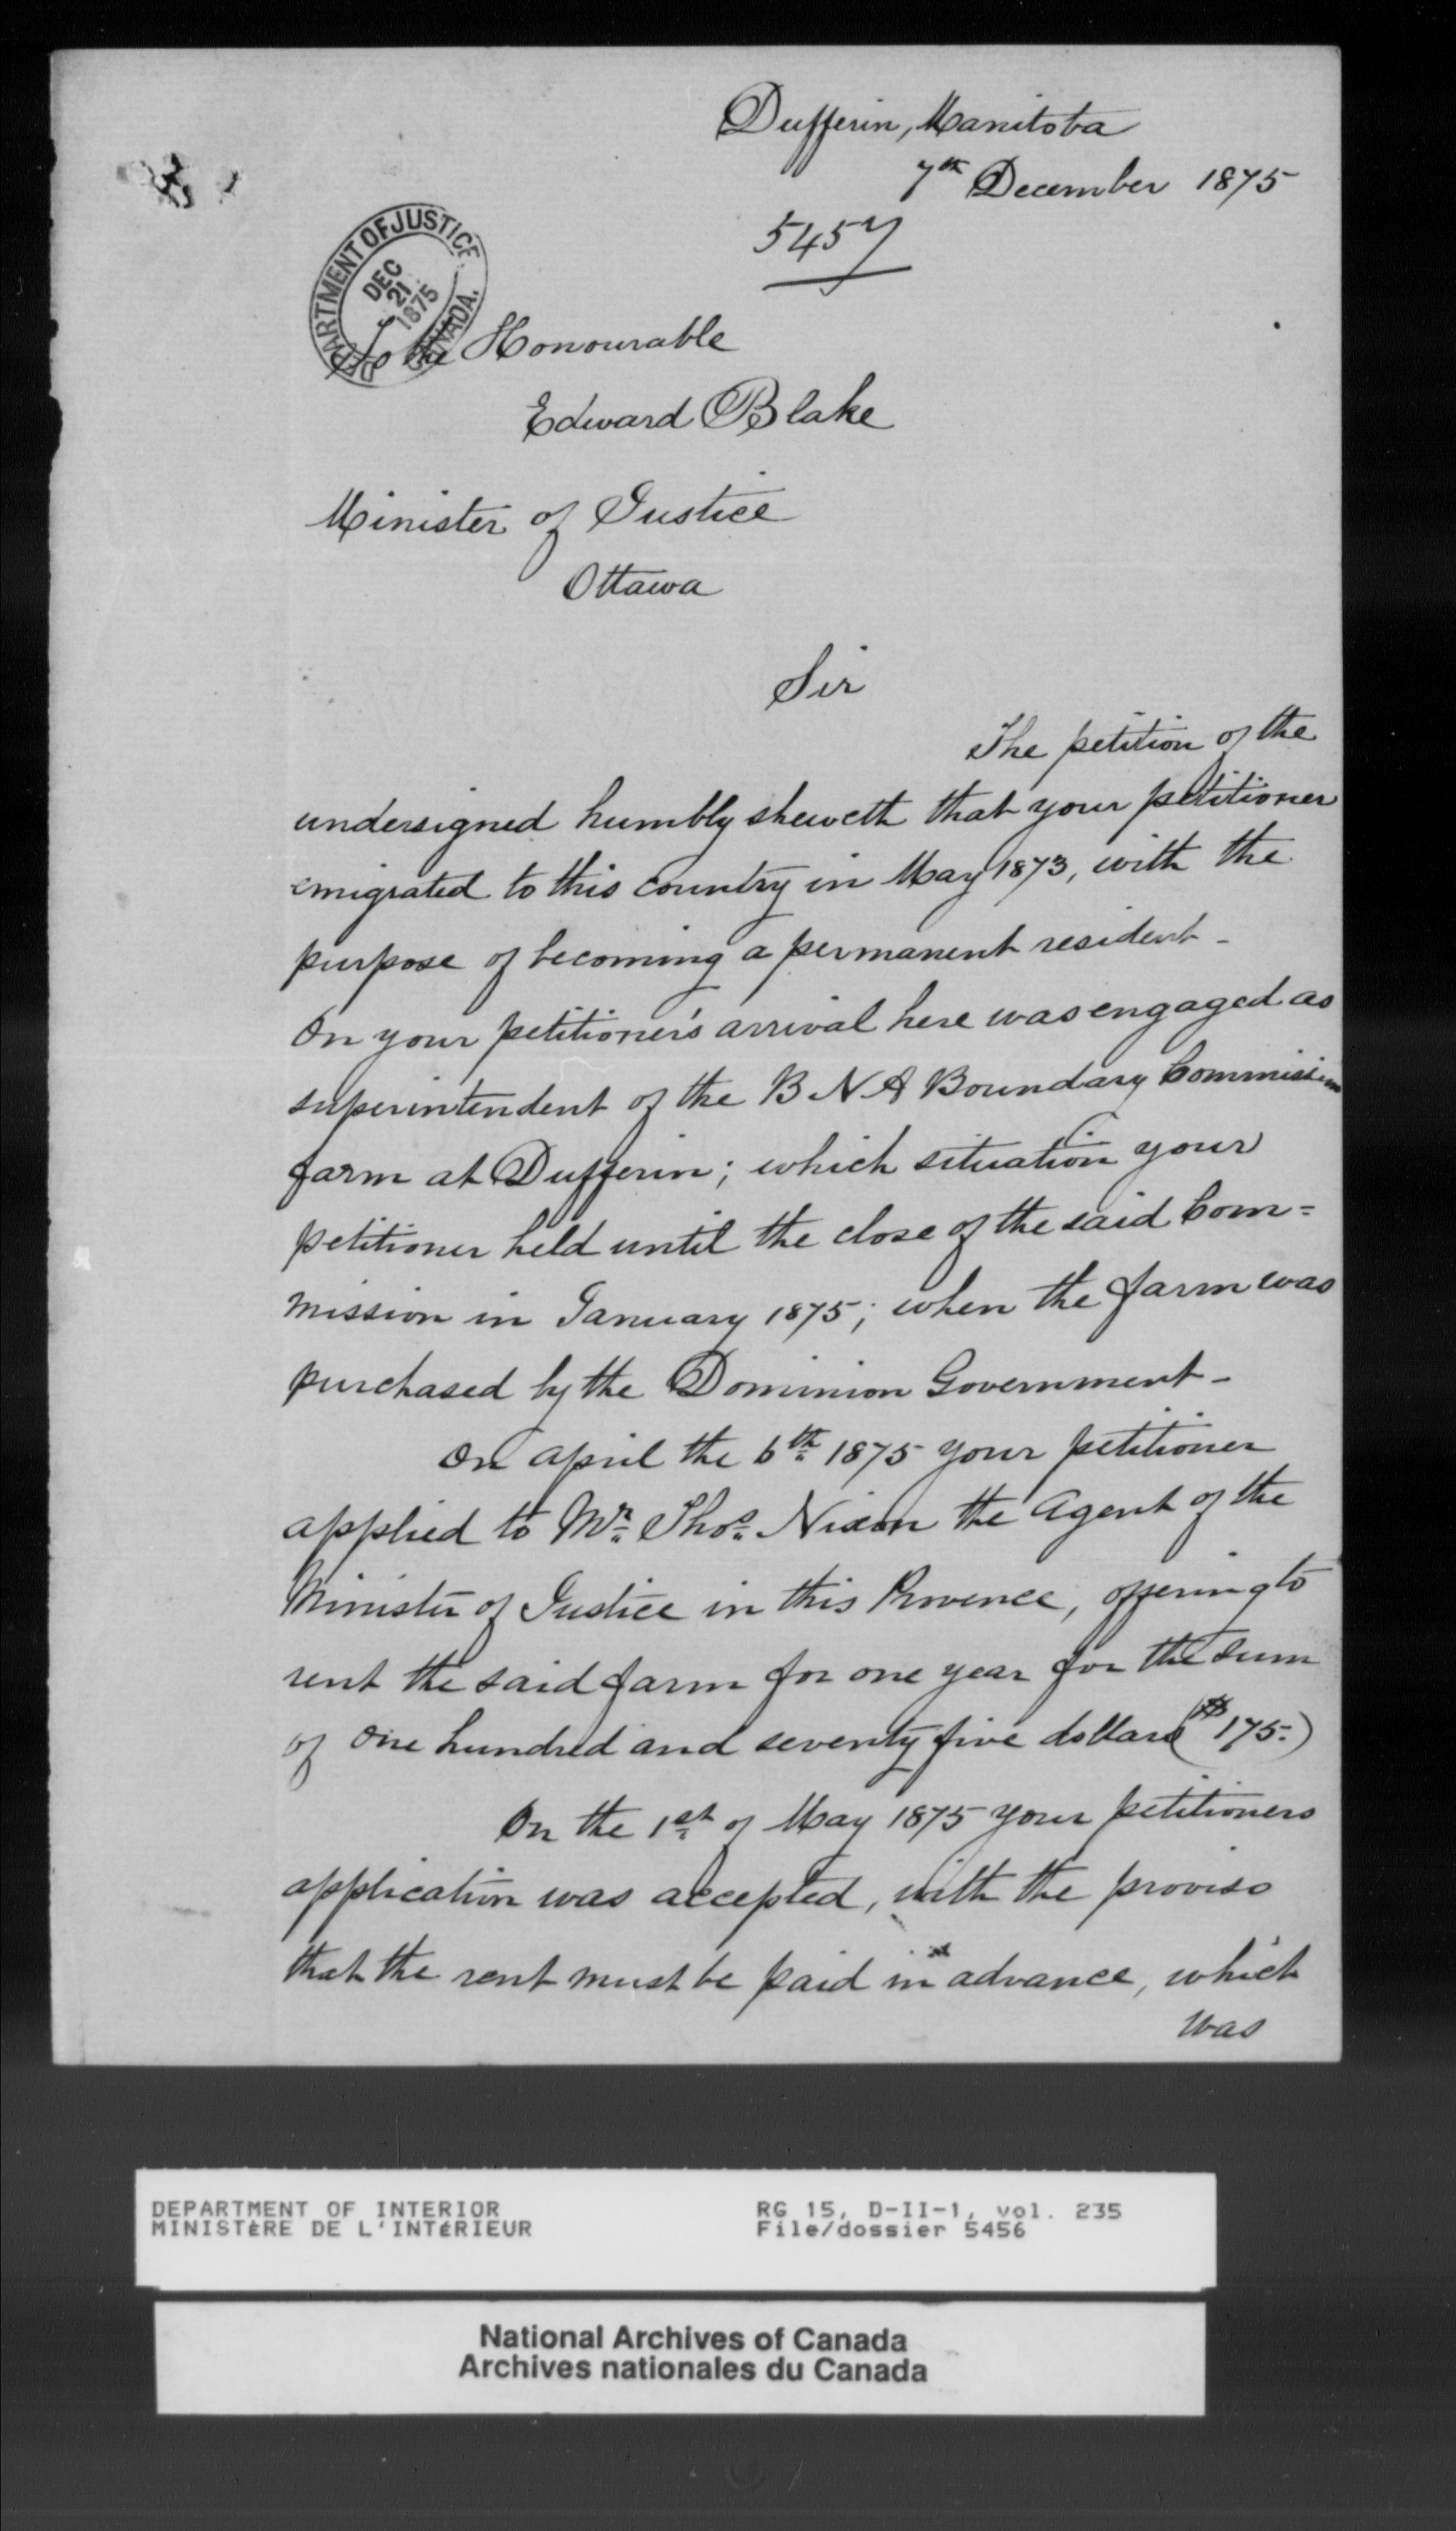 Dufferin, Manitoba
7th December 1875
5457
DEPARTMENT OF JUSTICE
DEC
21
1875
CANADA.
To the Honourable
Edward Blake
Minister of Justice
Ottawa
Sir
The petition of the
undersigned humbly sheweth that your petitioner
emigrated to this country in May 1873, with the
purpose of becoming a permanent resident -
On your petitioner's arrival here was engaged as
superintendent of the B N A Boundary Commission
farm at Dufferin; which situation your
petitioner held until the close of the said Com=
mission in January 1875; when the farm was
purchased by the Dominion Government -
On april the 6th 1875 your petitioner
applied to Mr Thos Nixon the Agent of the
Minister of Justice in this Province, offering to
rent the said farm for one year for the sum
of One hundred and seventy five dollars ($175.)
On the 1st of May 1875 your petitioners
application was accepted, with the proviso
that the rent must be paid in advance, which
was
DEPARTMENT OF INTERIOR
MINISTÈRE DE L'INTÉRIEUR
RG 15, D-II-1, vol. 235
File/dossier 5456
National Archives of Canada
Archives nationales du Canada